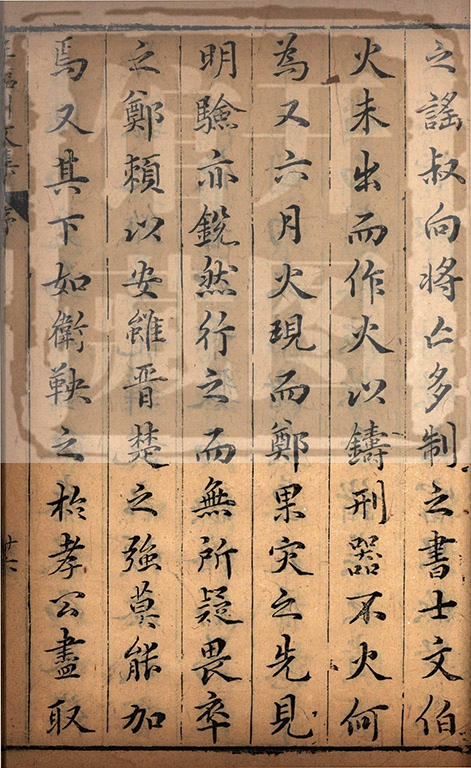 之謠叔向將亾多制之書士文伯
火未出而作火以鑄刑器不火何
為又六月火現而鄭果灾之先見
明驗亦銳然行之而無所疑畏卒
之鄭頼以安雖晋楚之強莫能加
焉又其下如衛鞅之於孝公盡取
王臨川文集 序